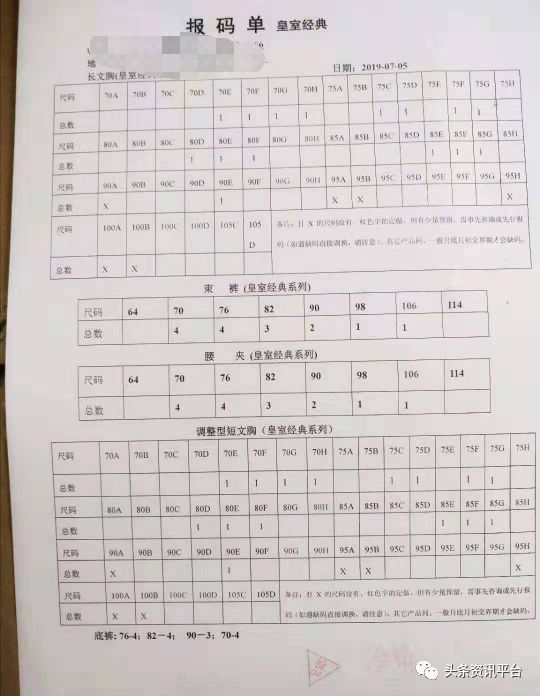 报码单 皇室经典
地
日期：2019-07-05
长文胸(皇室经典
尺码 70A 70B 70C 70D 70E 70F 70G 70H 75A 75B 75C 75D 75E 75F 75G 75H
总数 1 1 1 1 1 1 1 1
尺码 80A 80B 80C 80D 80E 80F 80G 80H 85A 85B 85C 85D 85E 85F 85G 85H
总数 1 1 1 1 1 1
尺码 90A 90B 90C 90D 90E 90F 90G 90H 95A 95B 95C 95D 95E 95F 95G 95H
总数 X 1 X X X
尺码 100A 100B 100C 100D 105C 105D 备注：打 X 的尺码没有，红色字的定做，但有少量预留，需事先咨询或先行报
码（如遇缺码直接调换，请注意）。其它产品同，一般月底月初交界期才会缺码。
总数 X X
束 裤 (皇室经典系列)
尺码 64 70 76 82 90 98 106 114
总数 4 4 3 2 1 1
腰 夹 (皇室经典系列)
尺码 64 70 76 82 90 98 106 114
总数 4 4 3 2 1 1
调整型短文胸（皇室经典系列）
尺码 70A 70B 70C 70D 70E 70F 70G 70H 75A 75B 75C 75D 75E 75F 75G 75H
总数 1 1 1 1 1 1 1 1
尺码 80A 80B 80C 80D 80E 80F 80G 80H 85A 85B 85C 85D 85E 85F 85G 85H
总数 1 1 1 1 1 1
尺码 90A 90B 90C 90D 90E 90F 90G 90H 95A 95B 95C 95D 95E 95F 95G 95H
总数 X 1 X X X
尺码 100A 100B 100C 100D 105C 105D 备注：打 X 的尺码没有，红色字的定做，但有少量预留，需事先咨询或先行报
码（如遇缺码直接调换，请注意）。其它产品同，一般月底月初交界期才会缺码。
总数 X X
底裤: 76-4; 82-4; 90-3; 70-4
头条资讯平台